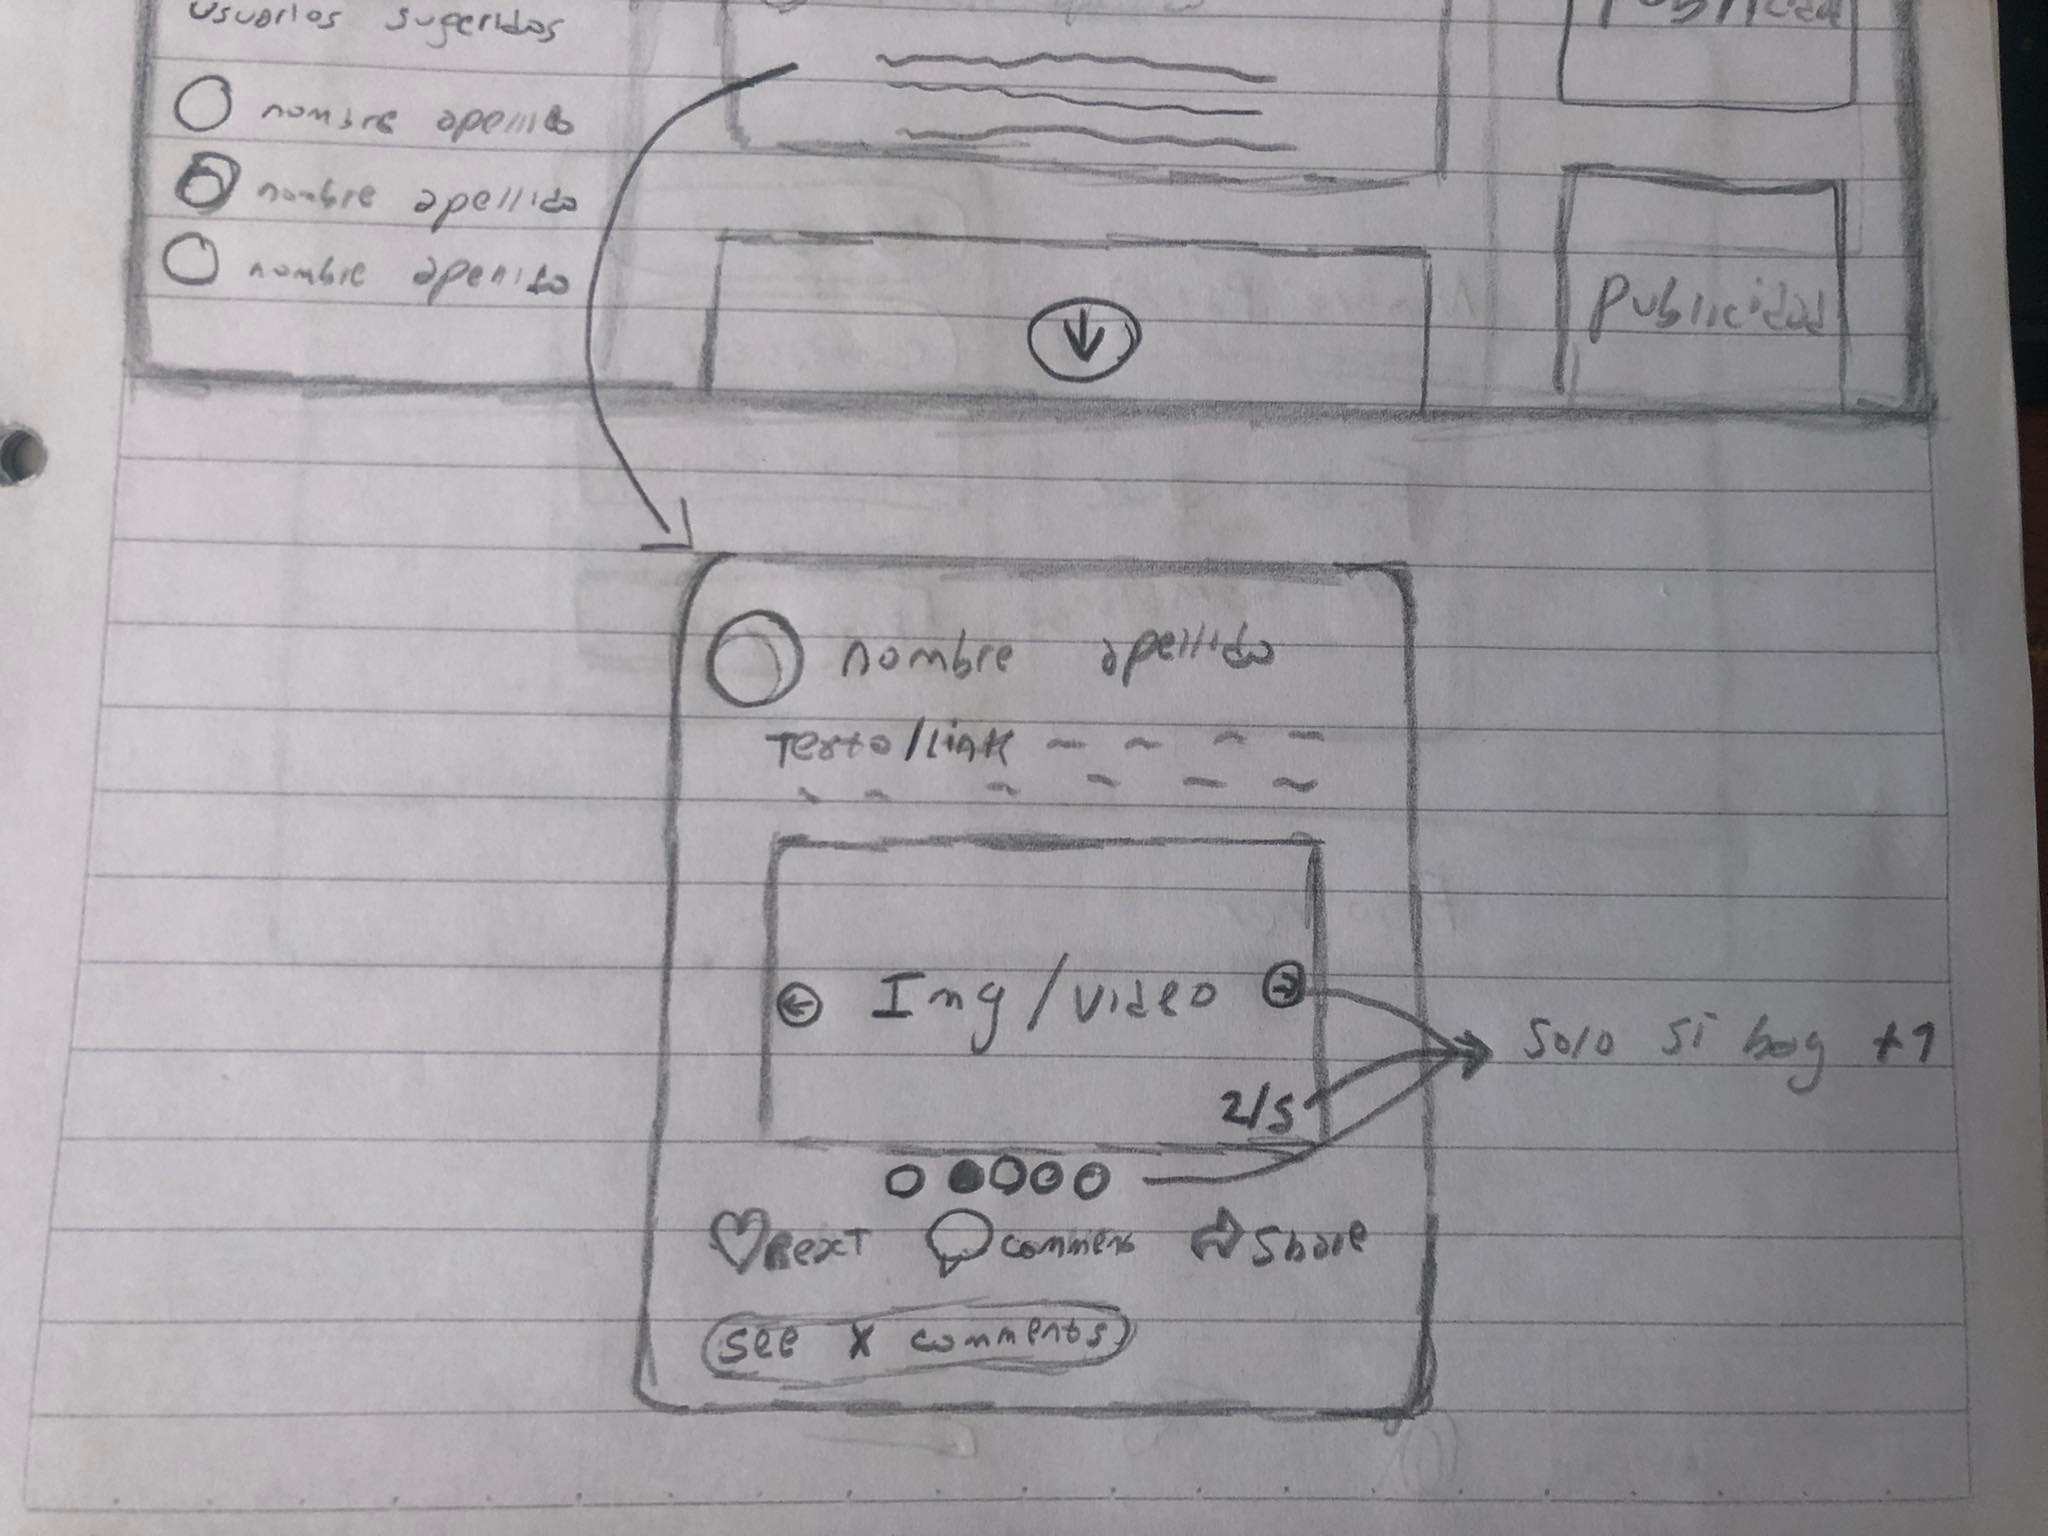 usuarios sugeridos
nombre apellido
nombre apellido
nombre apellido
publicidad
publicidad
nombre apellido
Texto/link
Img/video
2/5
solo si hay +1
React comment share
see X comments